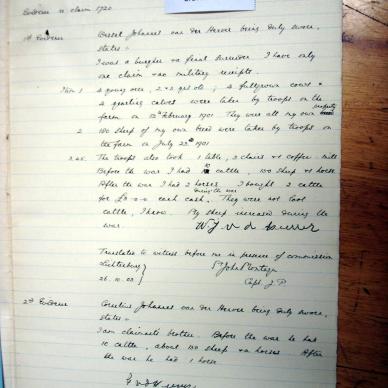 Evidence in claim 1720
1st Evidence Johannes van der Merwe being duly sworn,
states :-
I was a burgher & a final surrender. I have only
one claim & no military receipts.
Item 1. 4 young oxen, 2 & 3 yrs old ; 4 fullgrown cows &
4 yearling calves were taken by troops on the property
farm on 15th February 1901 They were all my own
2. 180 sheep of my own breed were taken by troops on
the farm on July 23rd 1901
3.4.5. The troops also took 1 table, 2 chairs & 1 coffee mill
Before the war I had 10 cattle, 130 sheep & horses
After the war I had 2 horses. I bought 2 cattle
during the war
for £ each cash. They were not loot
cattle, I know. My sheep increased during the
war.
Translated to witness before me in presence of commission
Lichtenburg
26.10.03
Capt. J.P.
2nd Evidence Cornelius Johannes van der Merwe being duly sworn,
states :-
I am claimant's brother. Before the war he had
10 cattle, about 130 sheep & horses After
the war he had 1 horse